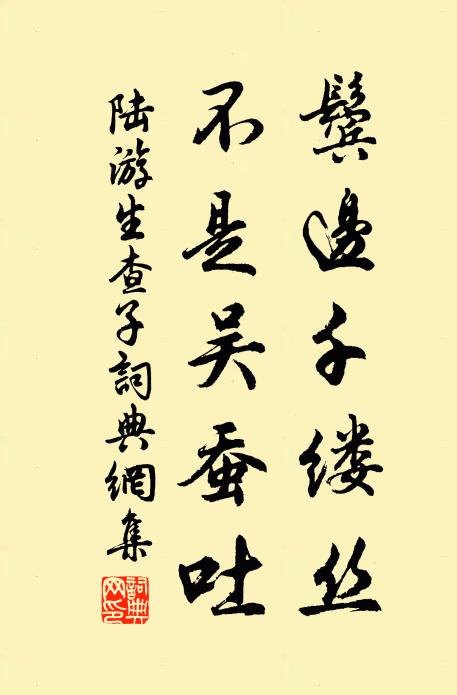 鬓邊千缕丝
不是吴蚕吐
陆游生查子詞典網集
詞典網印